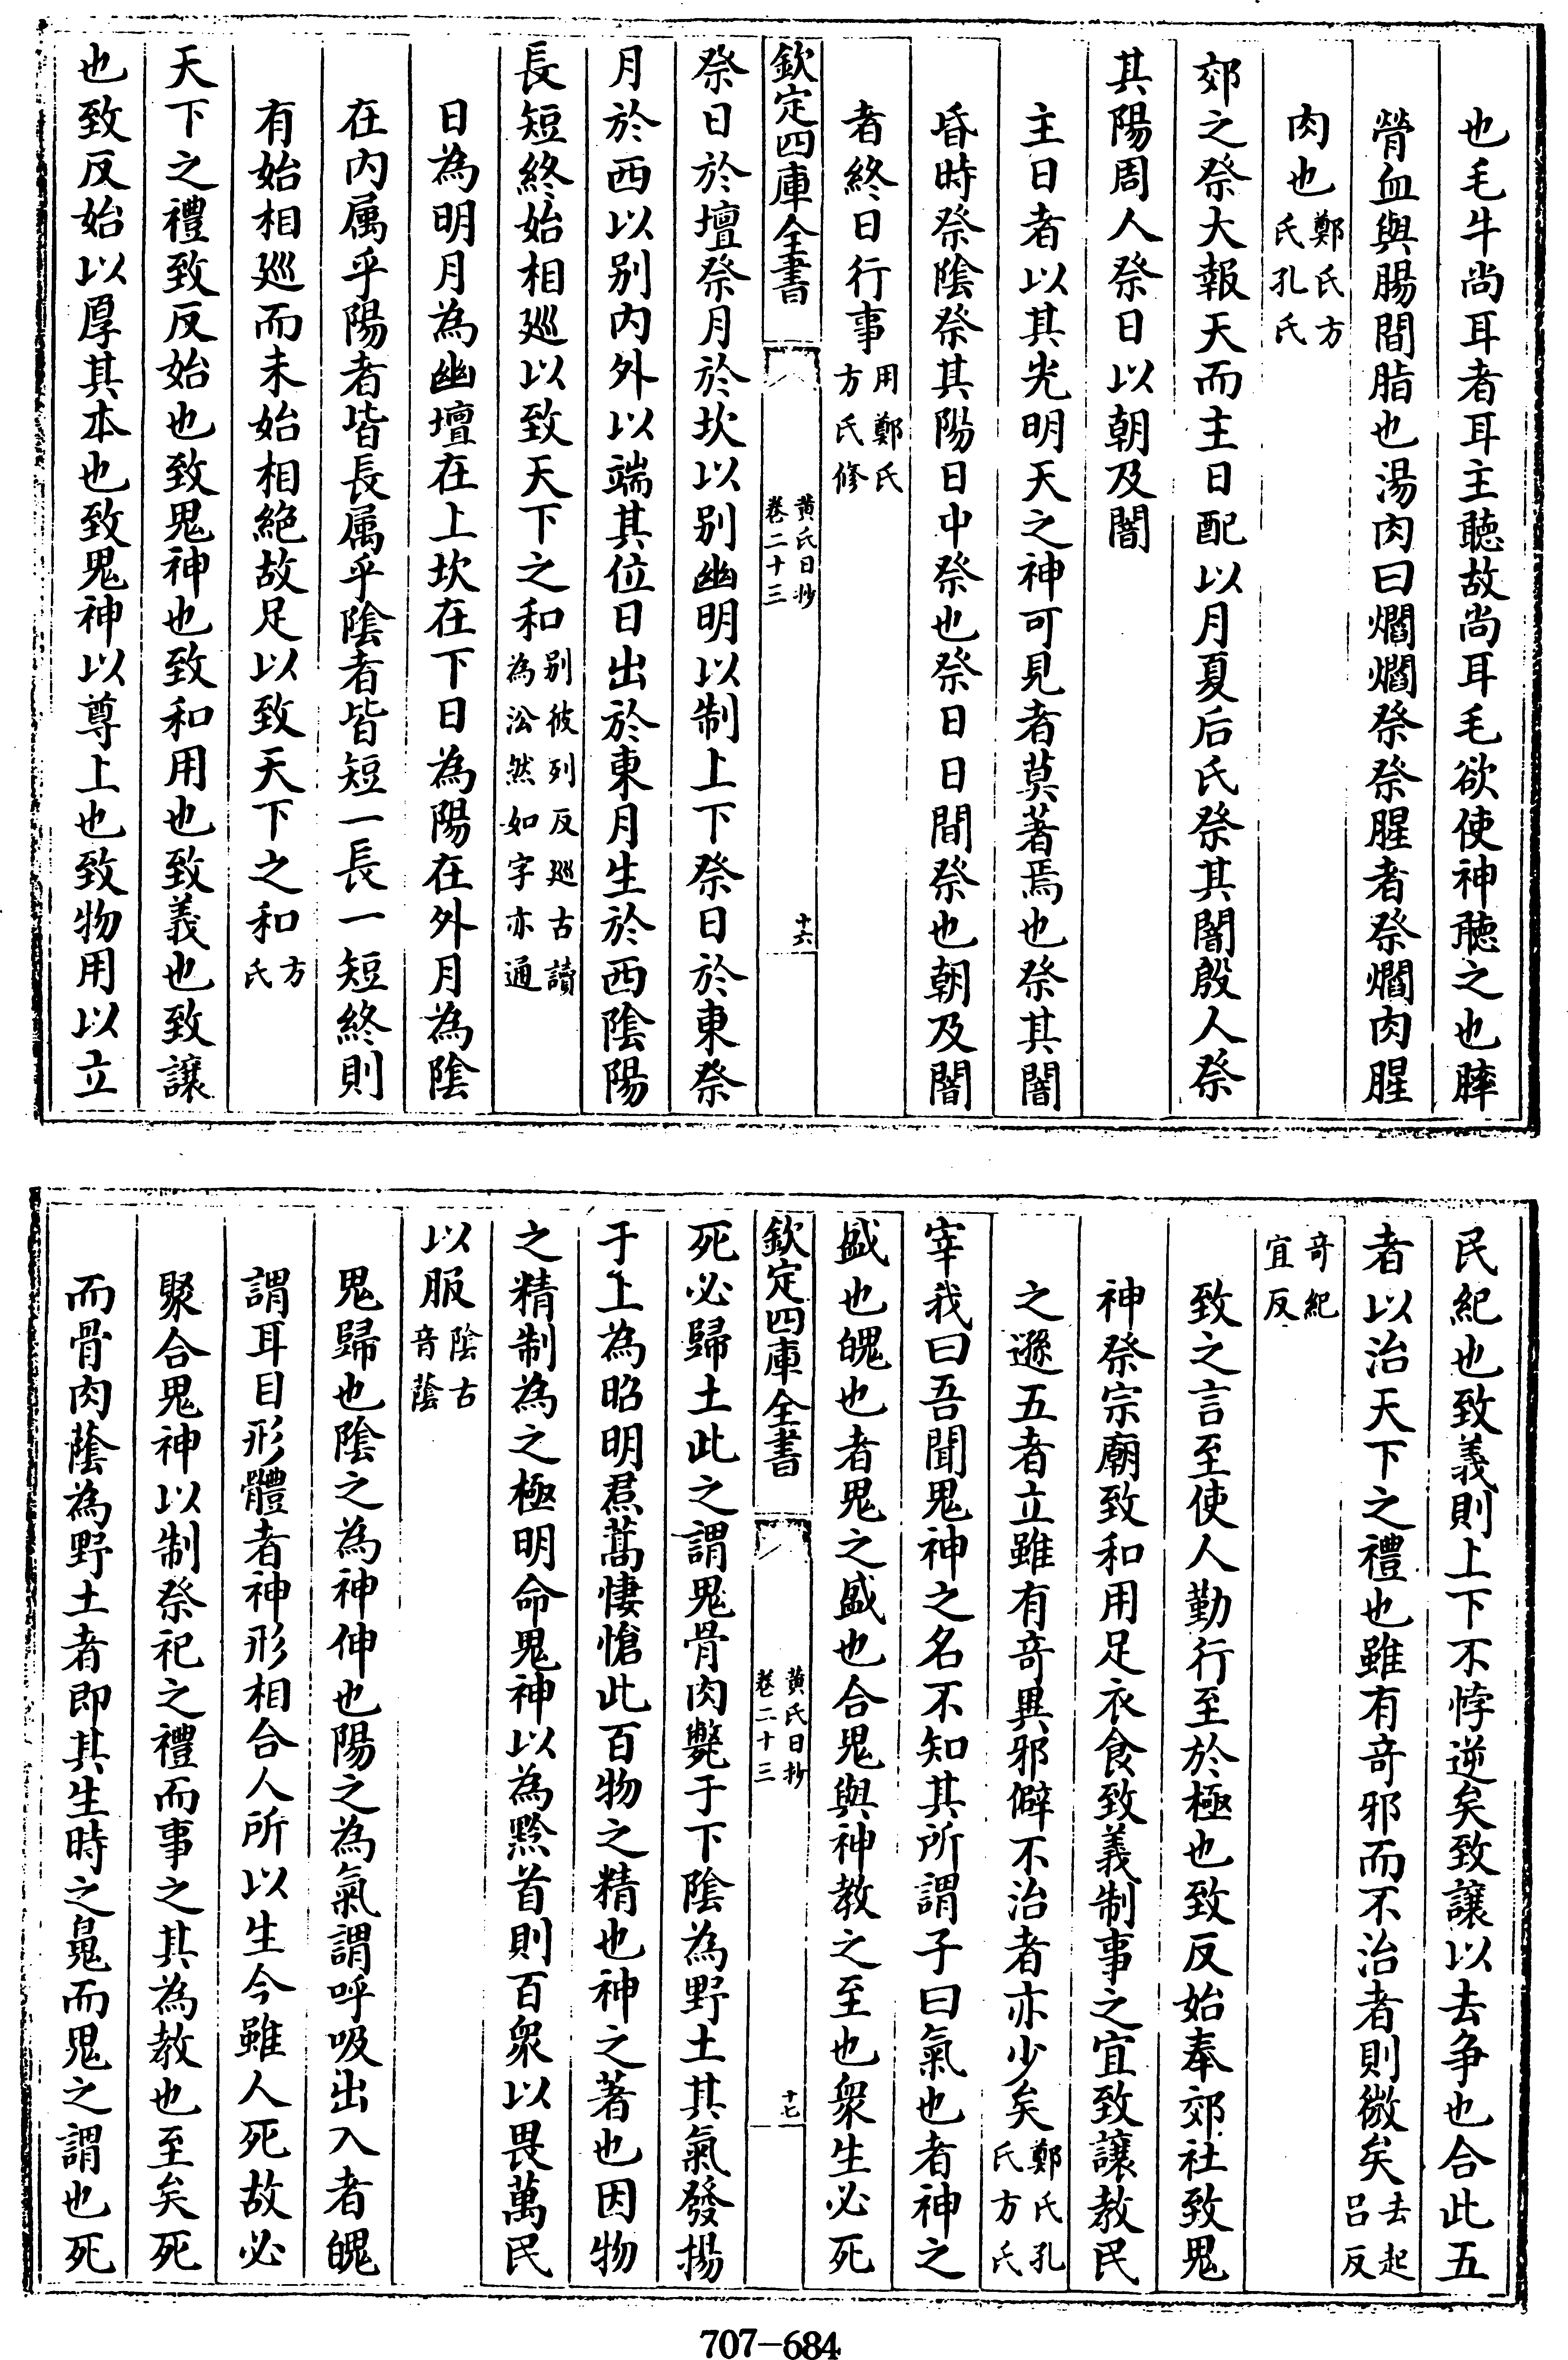 也毛牛尚耳者耳主聴故尚耳毛欲使神聴之也膟
膋血與腸間脂也湯肉曰爓爓祭祭腥者祭爓肉腥
肉也鄭氏方氏孔氏
郊之祭大報天而主日配以月夏后氏祭其闇殷人祭
其陽周人祭日以朝及闇
主日者以其光明天之神可見者莫著焉也祭其闇
昏時祭陰祭其陽日中祭也祭日日間祭也朝及闇
者終日行事用鄭氏方氏修
欽定四庫全書 黄氏日抄卷二十三 十六
祭日於壇祭月於坎以别幽明以制上下祭日於東祭
月於西以别内外以端其位日出於東月生於西陰陽
長短終始相廵以致天下之和别彼列反廵古讀為沿然如字亦通
日為明月為幽壇在上坎在下日為陽在外月為陰
在内属乎陽者皆長属乎陰者皆短一長一短終則
有始相廵而未始相絶故足以致天下之和方氏
天下之禮致反始也致鬼神也致和用也致義也致讓
也致反始以厚其本也致鬼神以尊上也致物用以立
民紀也致義則上下不悖逆矣致讓以去争也合此五
者以治天下之禮也雖有竒邪而不治者則微矣去起吕反
竒紀宜反
致之言至使人勤行至於極也致反始奉郊社致鬼
神祭宗廟致和用足衣食致義制事之宜致讓教民
之遜五者立雖有竒異邪僻不治者亦少矣鄭氏孔氏方氏
宰我曰吾聞鬼神之名不知其所謂子曰氣也者神之
盛也魄也者鬼之盛也合鬼與神教之至也衆生必死
欽定四庫全書 黄氏日抄卷二十三 十七
死必歸土此之謂鬼骨肉斃于下陰為野土其氣發揚
于上為昭明焄蒿悽愴此百物之精也神之著也因物
之精制為之極明命鬼神以為黔首則百衆以畏萬民
以服陰古音蔭
鬼歸也陰之為神伸也陽之為氣謂呼吸出入者魄
謂耳目形體者神形相合人所以生今雖人死故必
聚合鬼神以制祭祀之禮而事之其為教也至矣死
而骨肉蔭為野土者即其生時之鬼而鬼之謂也死
707-684